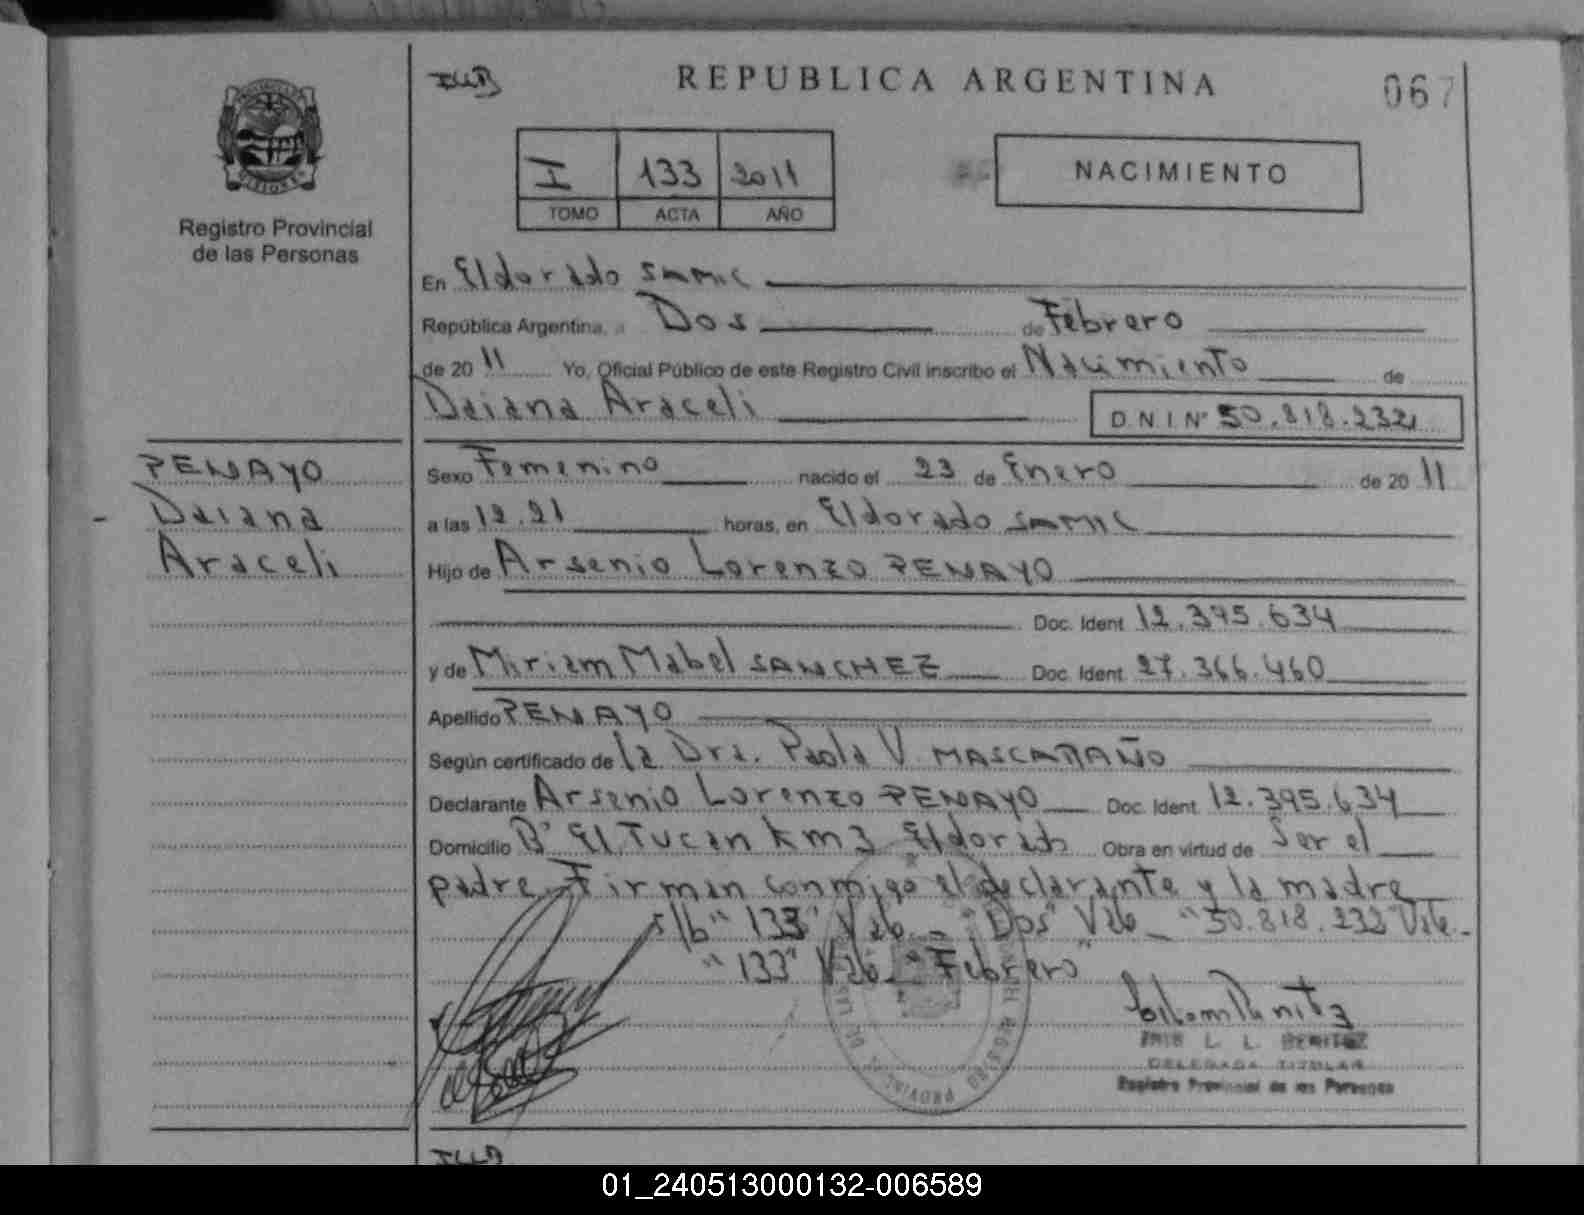 ILLB
REPUBLICA ARGENTINA
067
I 133 2011
TOMO ACTA AÑO
NACIMIENTO
Registro Provincial
de las Personas
En Eldorado SAMIC
República Argentina, a Dos de Febrero
de 20 11 Yo, Oficial Público de este Registro Civil inscribo el Nacimiento de
Daiana Araceli D.N.I.Nº 50.818.232
PENAYO
Daiana
Araceli
Sexo Femenino nacido el 23 de Enero de 20 11
a las 12.21 horas, en Eldorado SAMIC
Hijo de Arsenio Lorenzo PENAYO
Doc. Ident 12.395.634
y de Miriam Mabel SANCHEZ Doc. Ident 27.366.460
Apellido PENAYO
Según certificado de la Dra. Paola V. MASCARAÑO
Declarante Arsenio Lorenzo PENAYO Doc. Ident 12.395.634
Domicilio Bº El Tucan Km 3 Eldorado Obra en virtud de Ser el
padre Firman conmigo el declarante y la madre
s/b "133" Vale_ "Dos" Vale_ "50.818.232" Vale._
"133" Vale_ "Febrero"
L. L. BENITEZ
DELEGADA TITULAR
Registro Provincial de las Personas
ILLB
01_240513000132-006589